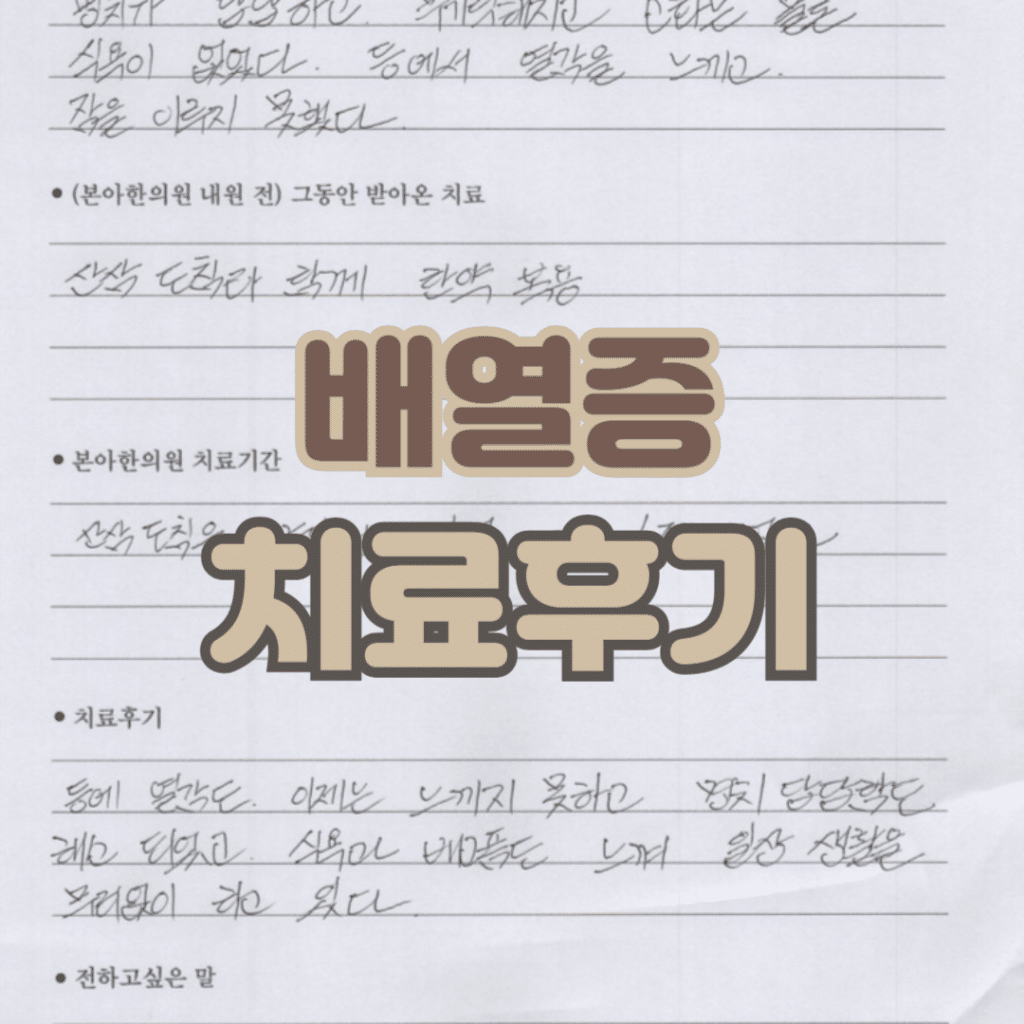 식욕이 없었다. 등에서 열감을 느끼고.
잠을 이루지 못했다.
• (본아한의원 내원 전) 그동안 받아온 치료
산삼 도착과 함께 탄약 복용
배열증
• 본아한의원 치료기간
산삼 도착
치료후기
• 치료후기
등에 열감도. 이제는 느끼지 못하고 명치 답답함도
해소 되었고. 식욕과 배고픔도 느껴 일상 생활을
무리없이 하고 있다.
• 전하고싶은 말